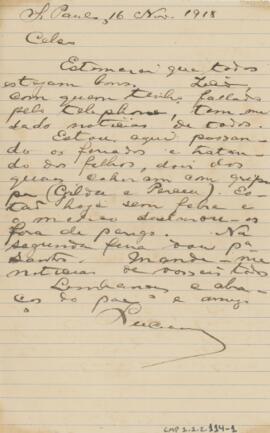 S. Paulo, 16 Nov. 1918
Celso
Estimarei que todos
estejam bons.
com quem tenho fallado
pelo telephone, tem me
dado noticias de todos.
Estou aqui passan
do os feriados e tratan
do dos filhos, dois dos
quaes cahiram com grip
pe (Caldeu e Perceu). Es
tão hoje sem febre e
o medico declarou-os
fora de perigo. Na
segunda feira vou pa
Santos. Mande-me
noticias de vosseis todos
Lembranças e abra
ços do pae e amigo
CMP 2.2.2.114-1